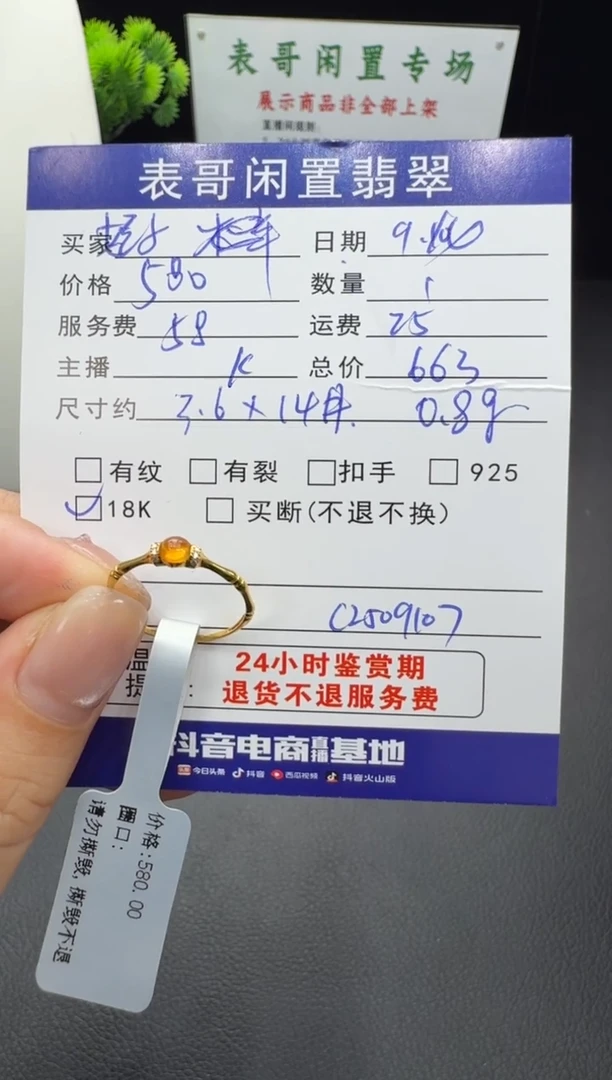 表哥闲置专场
展示商品非全部上架
表哥闲置翡翠
买家 日期 9.
价格 580 数量 1
服务费 58 运费 25
主播 K 总价 663
尺寸约 3.6×14# 0.8g
有纹 有裂 扣手 925
18K 买断(不退不换)
C2509107
温
提 :
24小时鉴赏期
退货不退服务费
抖音电商直播基地
今日头条 抖音 西瓜视频 抖音火山版
价格:580.00
圈口:
请勿撕毁,撕毁不退